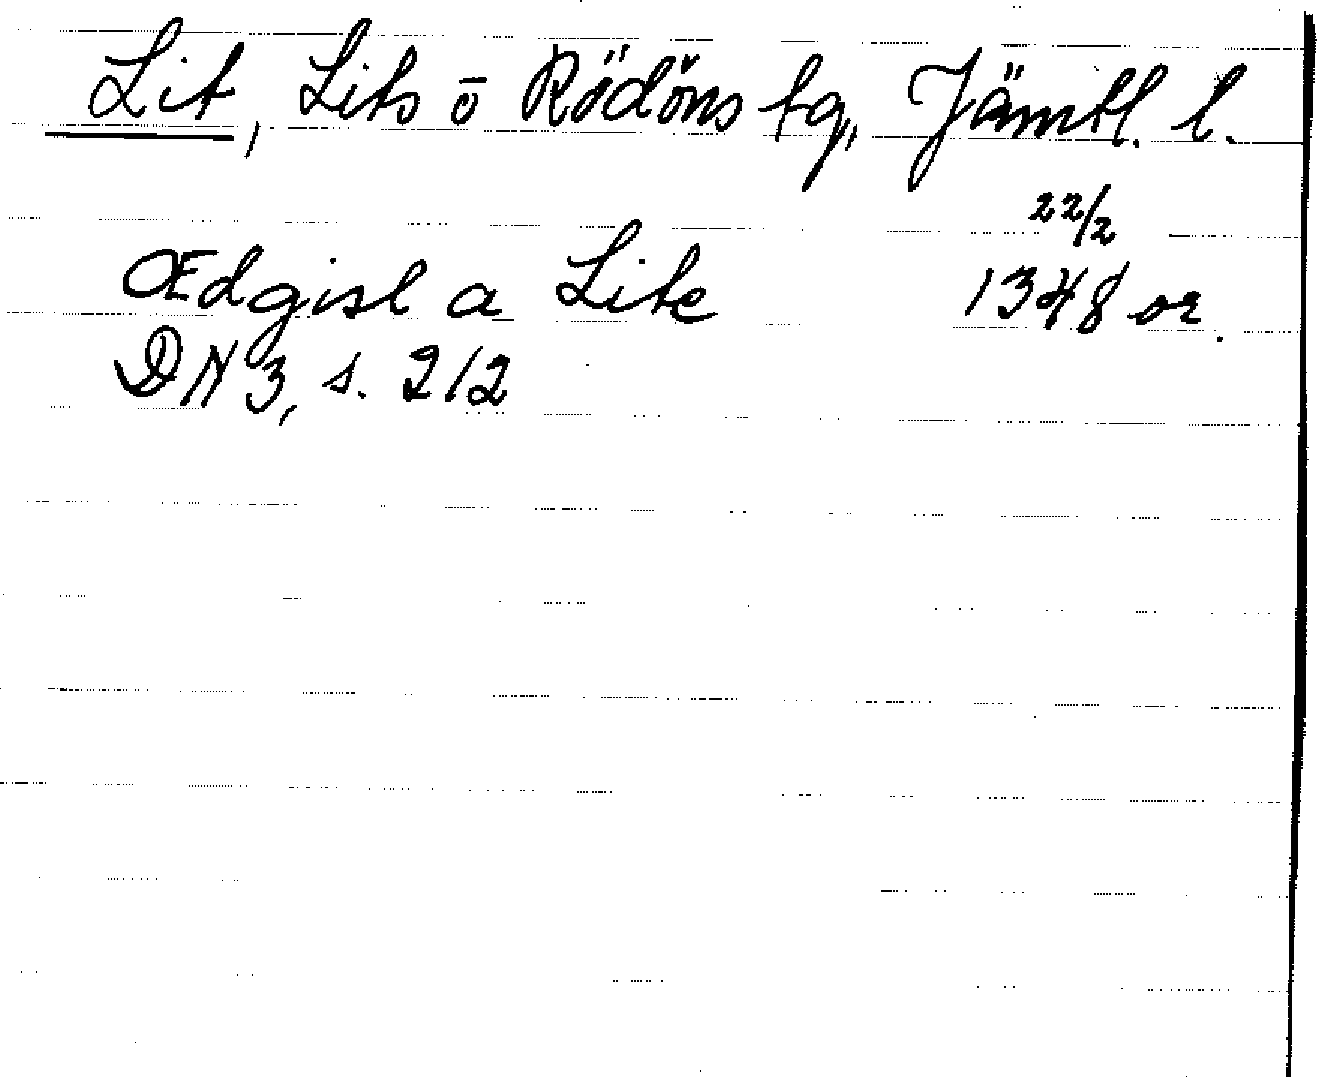 Lit, Lits o Rödöns tg, Jämtl. l.
22/2
Œdgisl a Lite 1348 or.
DN 3, s. 212